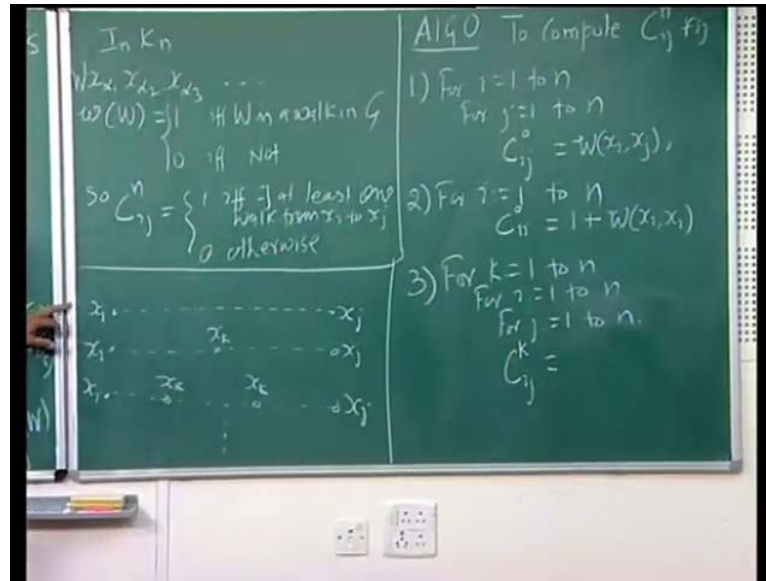 In Kn
W xα1, xα2, xα3 ....
w(W) = { 1 iff W is a walk in G
0 iff Not
So C^n_ij = { 1 iff ∃ at least one
walk from xi to xj
0 otherwise
xi xj
xi xk xj
xi xk xk xj
AlGO To Compute C^n_ij ∀ij
1) For i=1 to n
For j=1 to n
C^0_ij = w(xi, xj),
2) For i=1 to n
C^0_ii = 1 + w(xi, xi)
3) For k=1 to n
For i=1 to n
For j=1 to n.
C^k_ij =
W)